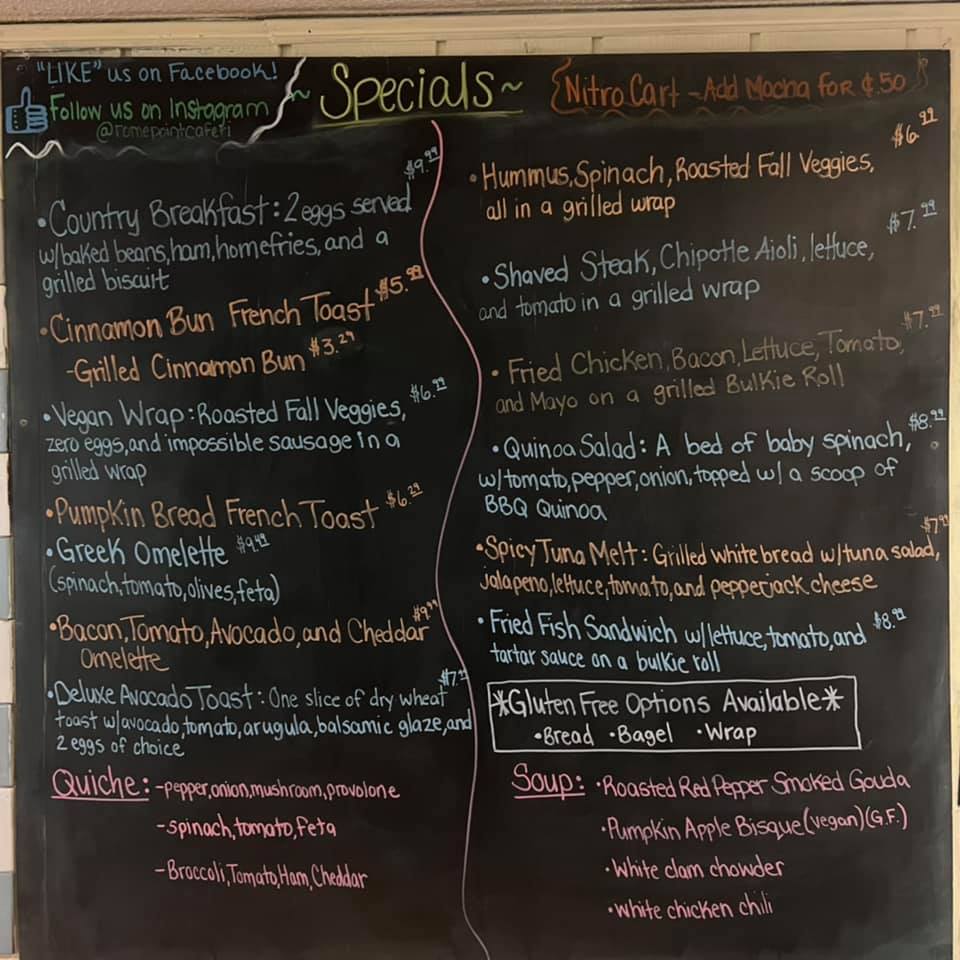 "LIKE" us on Facebook!
Follow us on Instagram
~ Specials ~
Nitro Cart - Add Mocha for ¢.50
$9.99
• Country Breakfast: 2 eggs served
w/baked beans, ham, homefries, and a
grilled biscuit
• Cinnamon Bun French Toast $5.99
- Grilled Cinnamon Bun $3.29
• Vegan Wrap: Roasted Fall Veggies, $6.99
zero eggs, and impossible sausage in a
grilled wrap
• Pumpkin Bread French Toast $6.29
• Greek Omelette $9.49
(spinach, tomato, olives, feta)
• Bacon, Tomato, Avocado, and Cheddar $9.99
Omelette
• Deluxe Avocado Toast: One slice of dry wheat $7.99
toast w/avocado, tomato, arugula, balsamic glaze, and
2 eggs of choice
Quiche: - pepper, onion, mushroom, provolone
- spinach, tomato, feta
- Broccoli, Tomato, Ham, Cheddar
$6.99
• Hummus, Spinach, Roasted Fall Veggies,
all in a grilled wrap
$7.99
• Shaved Steak, Chipotle Aioli, lettuce,
and tomato in a grilled wrap
$7.99
• Fried Chicken, Bacon, Lettuce, Tomato,
and Mayo on a grilled Bulkie Roll
• Quinoa Salad: A bed of baby spinach, $8.99
w/tomato, pepper, onion, topped w/ a scoop of
BBQ Quinoa
$7.99
• Spicy Tuna Melt: Grilled white bread w/tuna salad,
jalapeno, lettuce, tomato, and pepperjack cheese
• Fried Fish Sandwich w/lettuce, tomato, and $8.99
tartar sauce on a bulkie roll
*Gluten Free Options Available*
• Bread • Bagel • Wrap
Soup: • Roasted Red Pepper Smoked Gouda
• Pumpkin Apple Bisque (vegan) (G.F.)
• White clam chowder
• White chicken chili